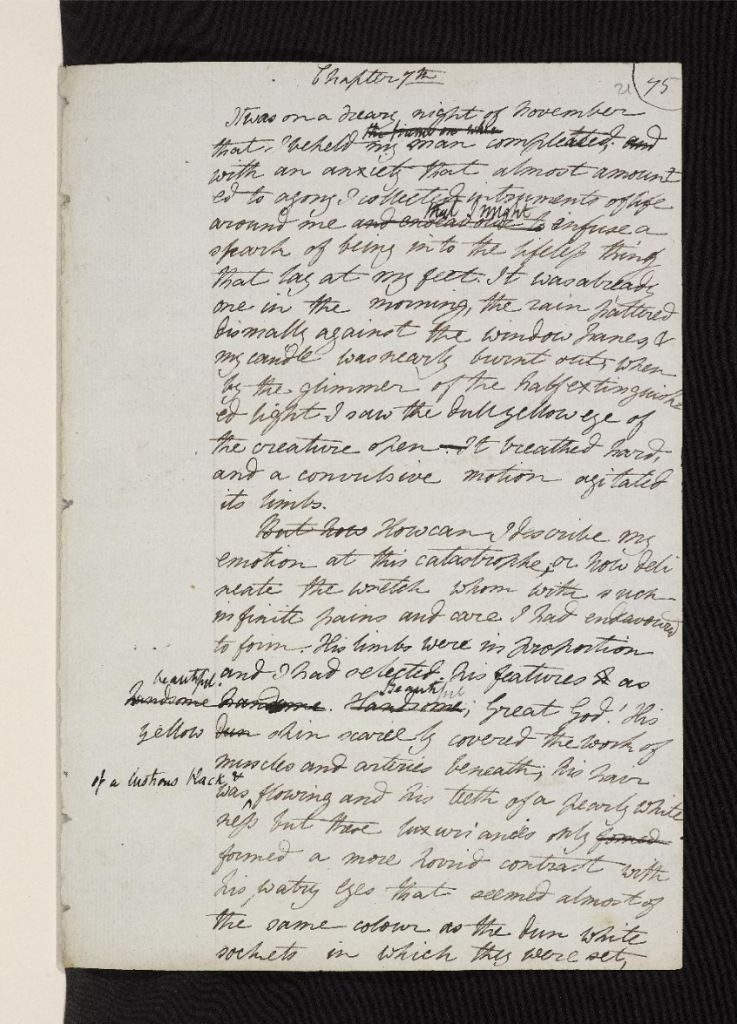 Chapter 7th
21 75
It was on a dreary night of November
the frame on whic
that I beheld my man compleated; and
with an anxiety that almost amount
ed to agony I collected instruments of life
that I might
around me and endeavour to infuse a
spark of being into the lifeless thing
that lay at my feet. It was already
one in the morning, the rain pattered
dismally against the window panes, &
my candle was nearly burnt out, when
by the glimmer of the half extinguish
ed light I saw the dull yellow eye of
the creature open—It breathed hard,
and a convulsive motion agitated
its limbs.
But how How can I describe my
emotion at this catastrophe, or how deli
neate the wretch whom with such
infinite pains and care I had endeavoured
to form. His limbs were in proportion
and I had selected his features & as
beautiful
beautiful
handsome handsome. Handsome; Great God! His
yellow dun skin scarcely covered the work of
muscles and arteries beneath; his hair
of a lustrous black &
was flowing and his teeth of a pearly white
ness but these luxuriances only formed
formed a more horrid contrast with
his watry eyes that seemed almost of
the same colour as the dun white
sockets in which they were set,